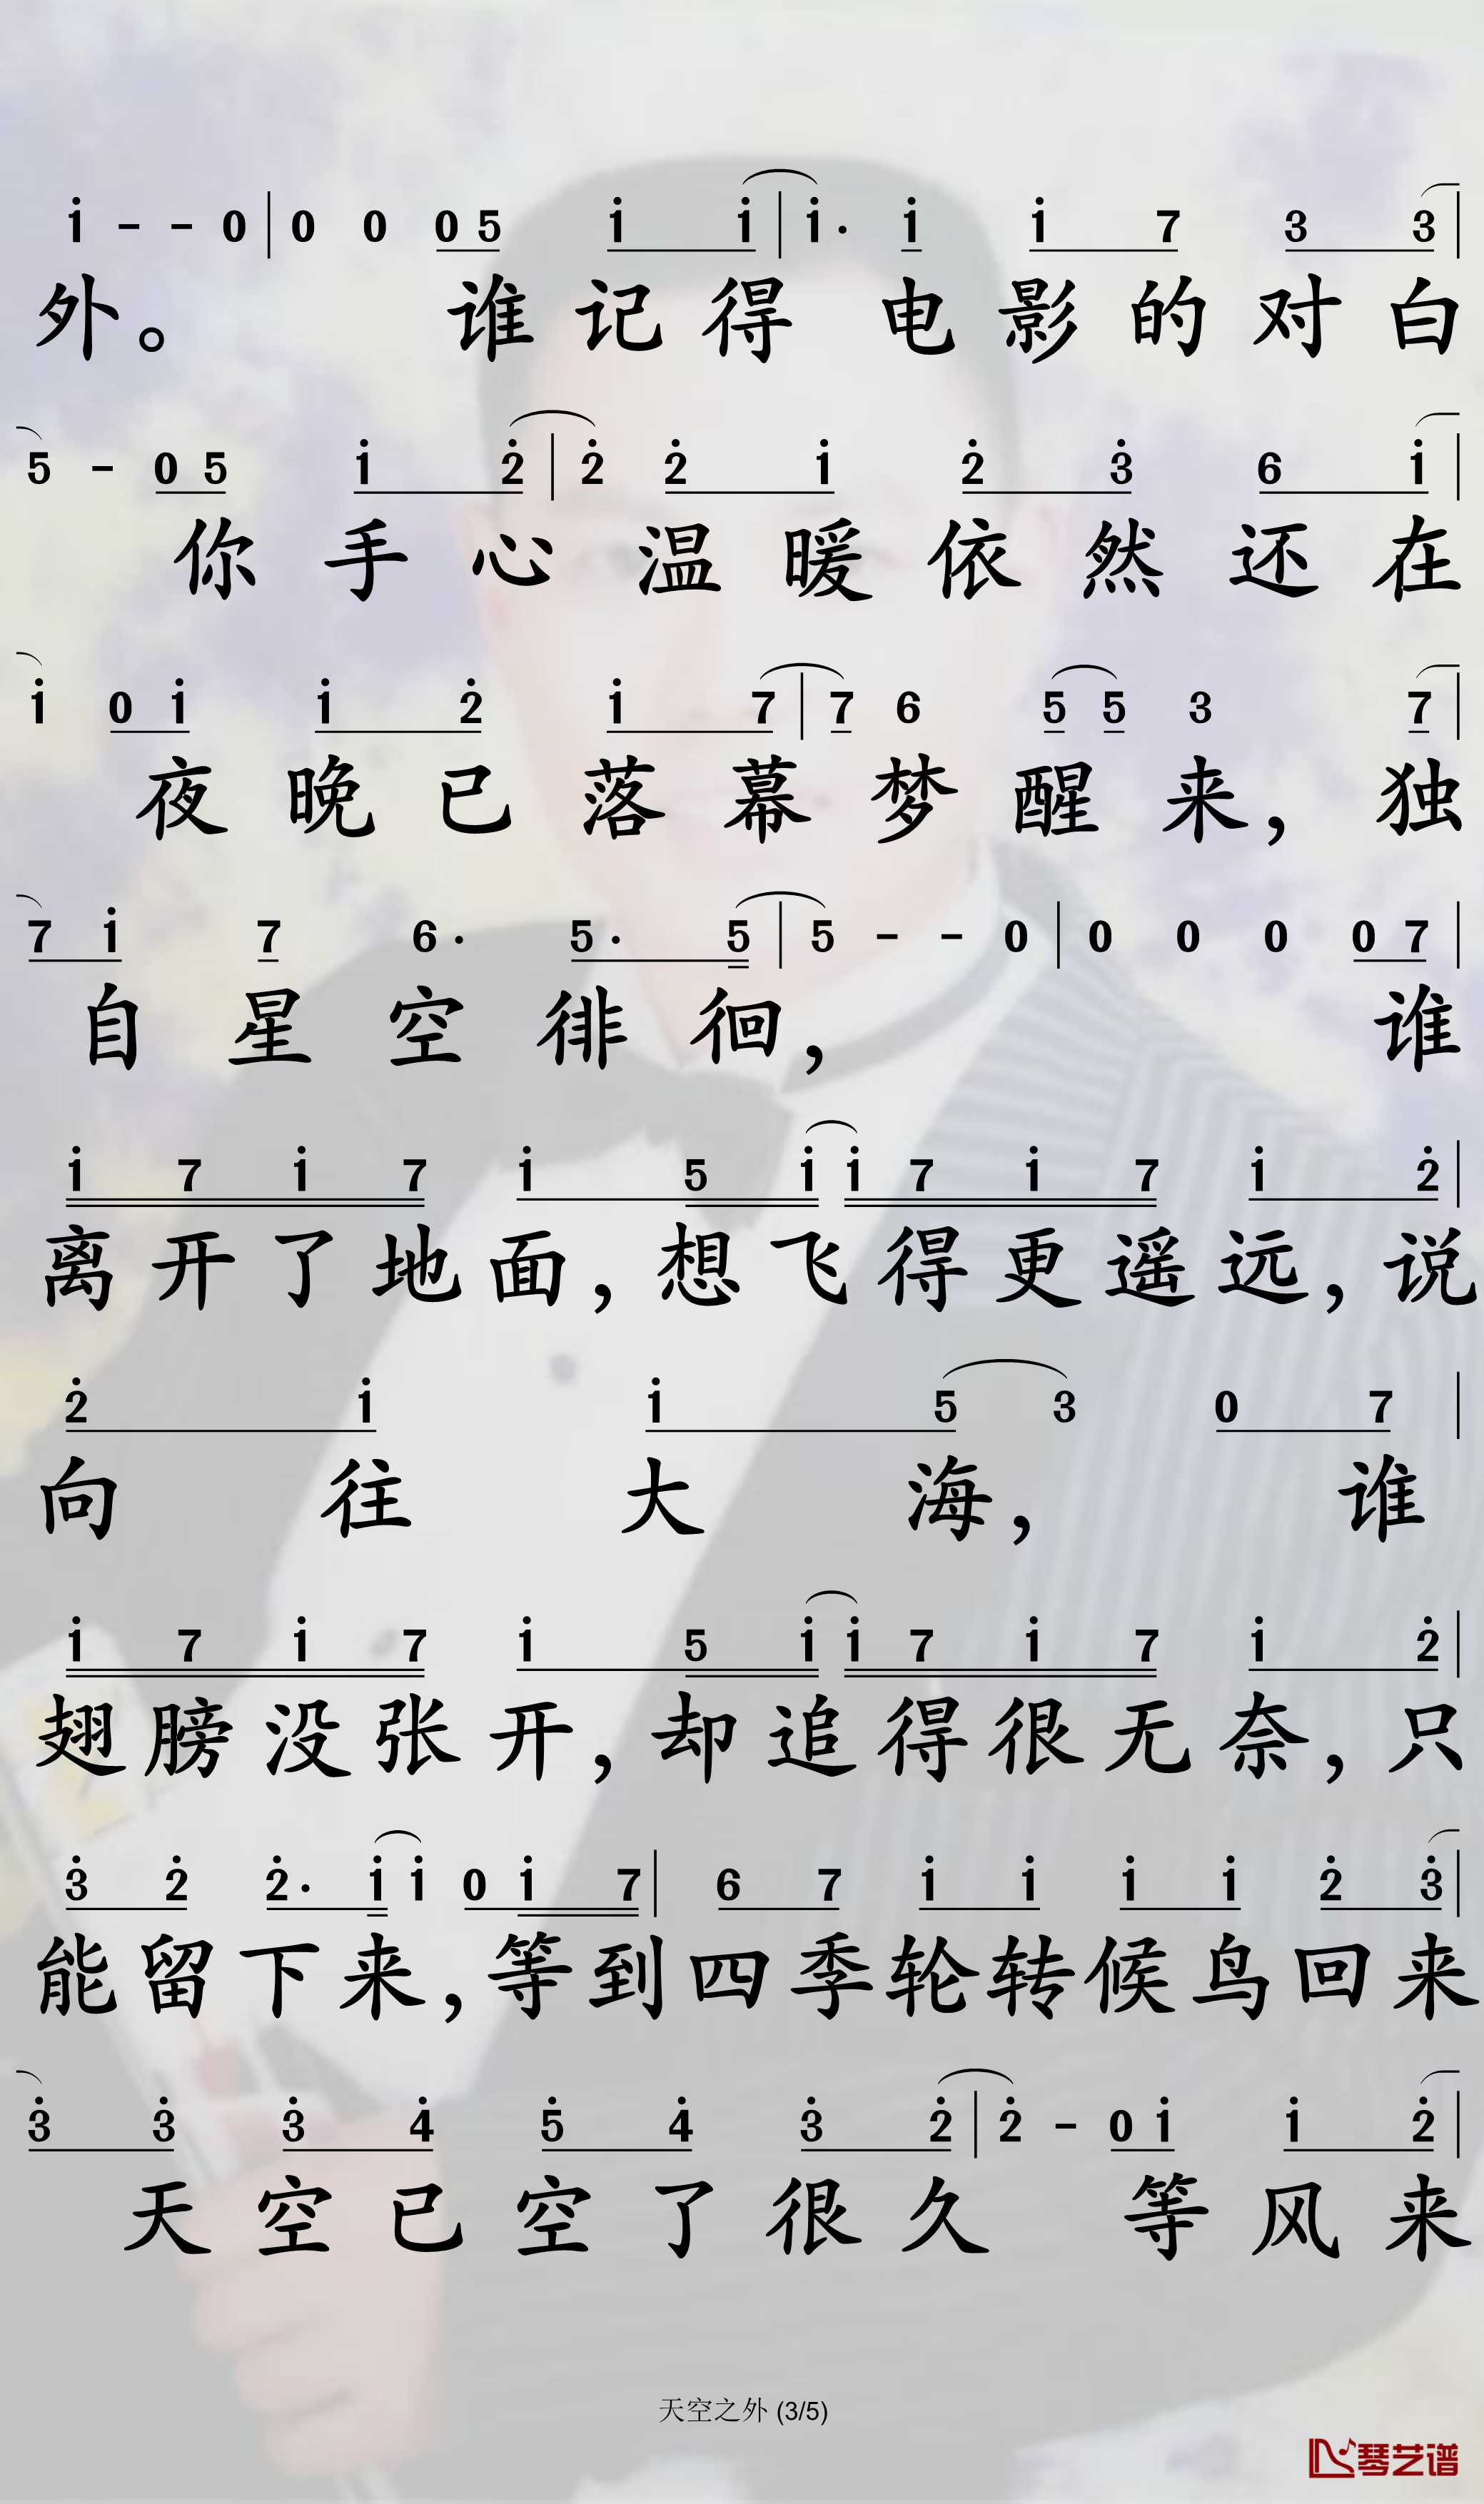 i - - 0 | 0 0 0 5 i i | i· i i 7 3 3 |
外。 谁 记 得 电 影 的 对 白
5 - 0 5 i 2 | 2 2 i 2 3 6 i |
你 手 心 温 暖 依 然 还 在
i 0 i i 2 i 7 | 7 6 5 5 3 7 |
夜 晚 已 落 幕 梦 醒 来， 独
7 i 7 6· 5· 5 | 5 - - 0 | 0 0 0 0 7 |
自 星 空 徘 徊， 谁
i 7 i 7 i 5 i i 7 i 7 i 2 |
离 开 了 地 面，想 飞 得 更 遥 远，说
2 i i 5 3 0 7 |
向 往 大 海， 谁
i 7 i 7 i 5 i i 7 i 7 i 2 |
翅 膀 没 张 开，却 追 得 很 无 奈，只
3 2 2· i i 0 i 7 | 6 7 i i i i 2 3 |
能 留 下 来，等 到 四 季 轮 转 候 鸟 回 来
3 3 3 4 5 4 3 2 | 2 - 0 i i 2 |
天 空 已 空 了 很 久 等 风 来
天空之外 (3/5)
琴艺谱